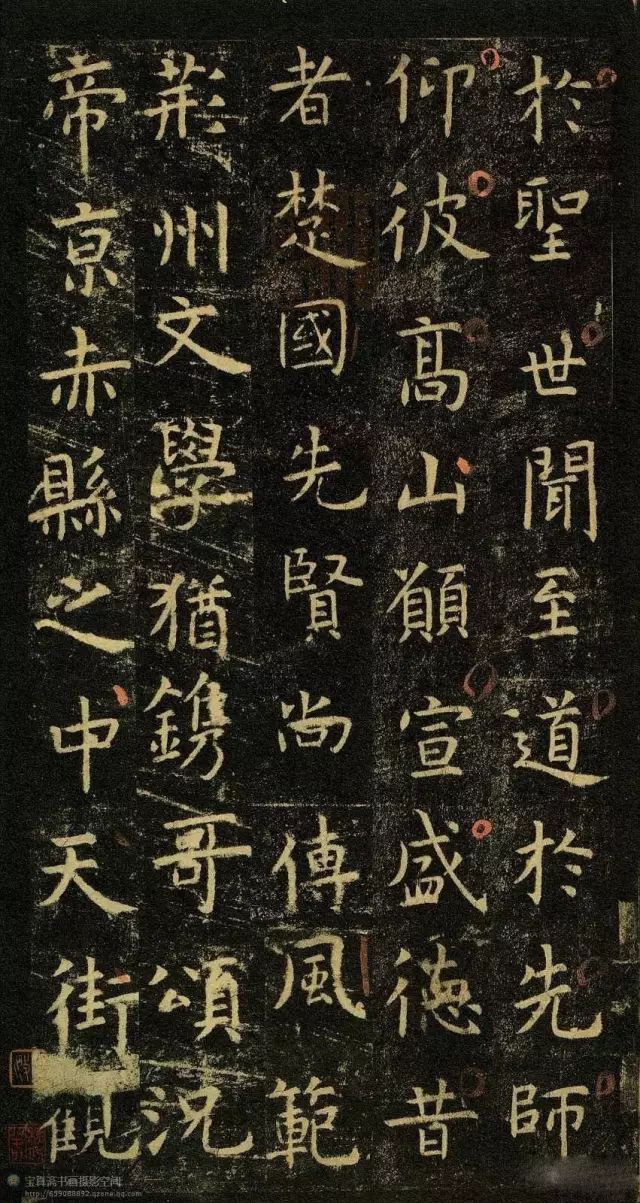 於聖世聞至道於先師
仰彼髙山願宣盛徳昔
者楚國先賢尚傳風範
荊州文學猶鐫哥頌況
帝亰赤縣之中天街觀
宝真斋书画摄影空间
http://659088892.qzone.qq.com